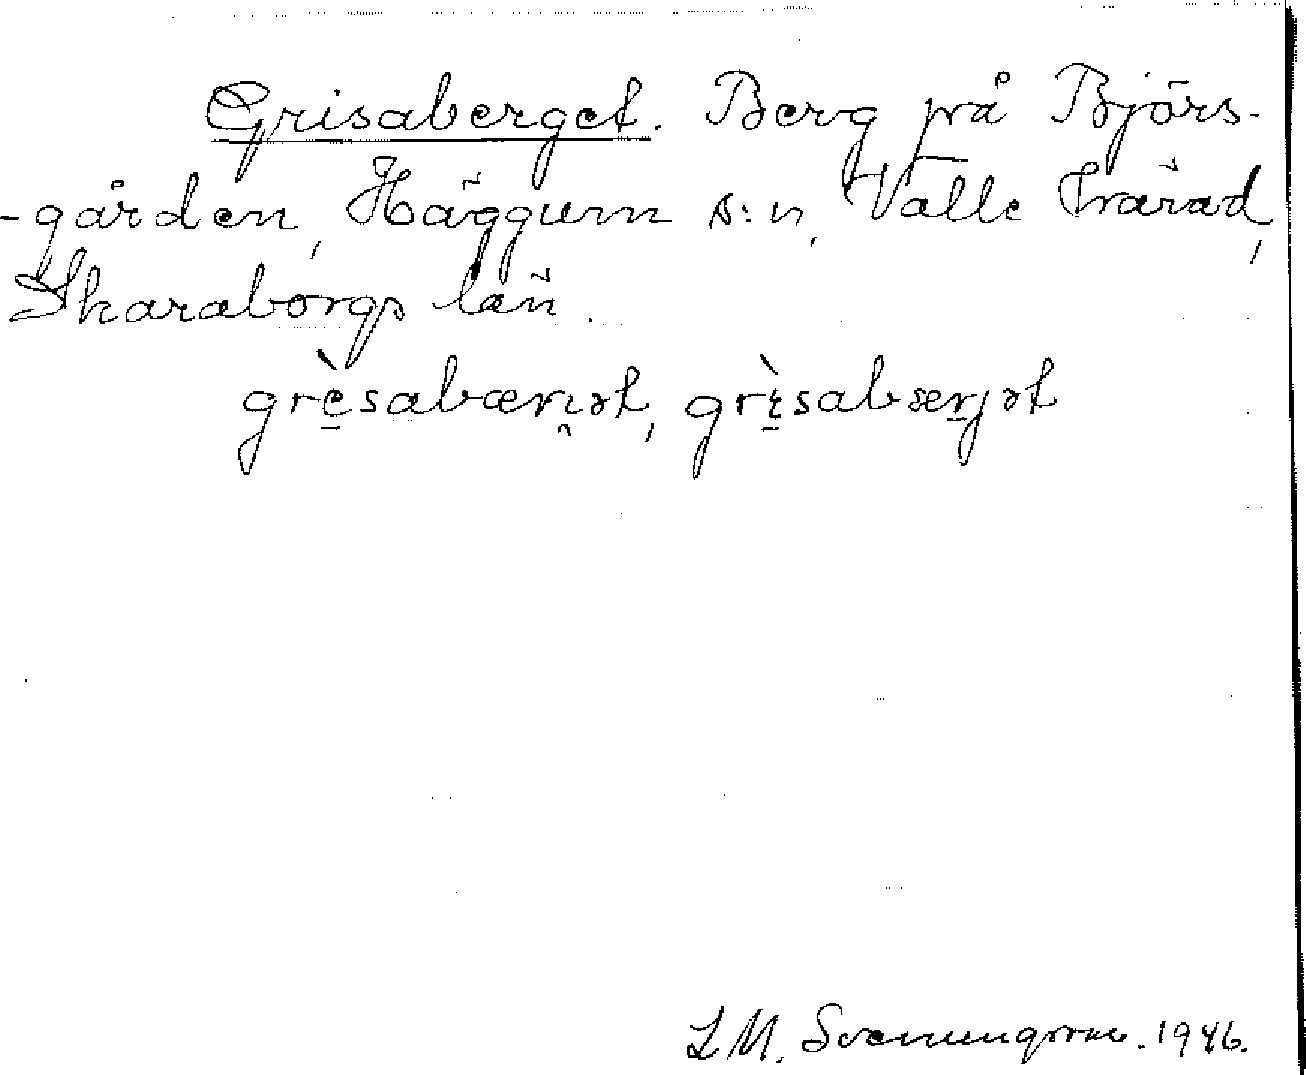 Grisaberget. Berg på Björs-
-gården, Häggum s:n, Valle härad,
Skaraborgs län.
grèsabærɪət, grìsabærjət
L M. Svenungsson. 1946.